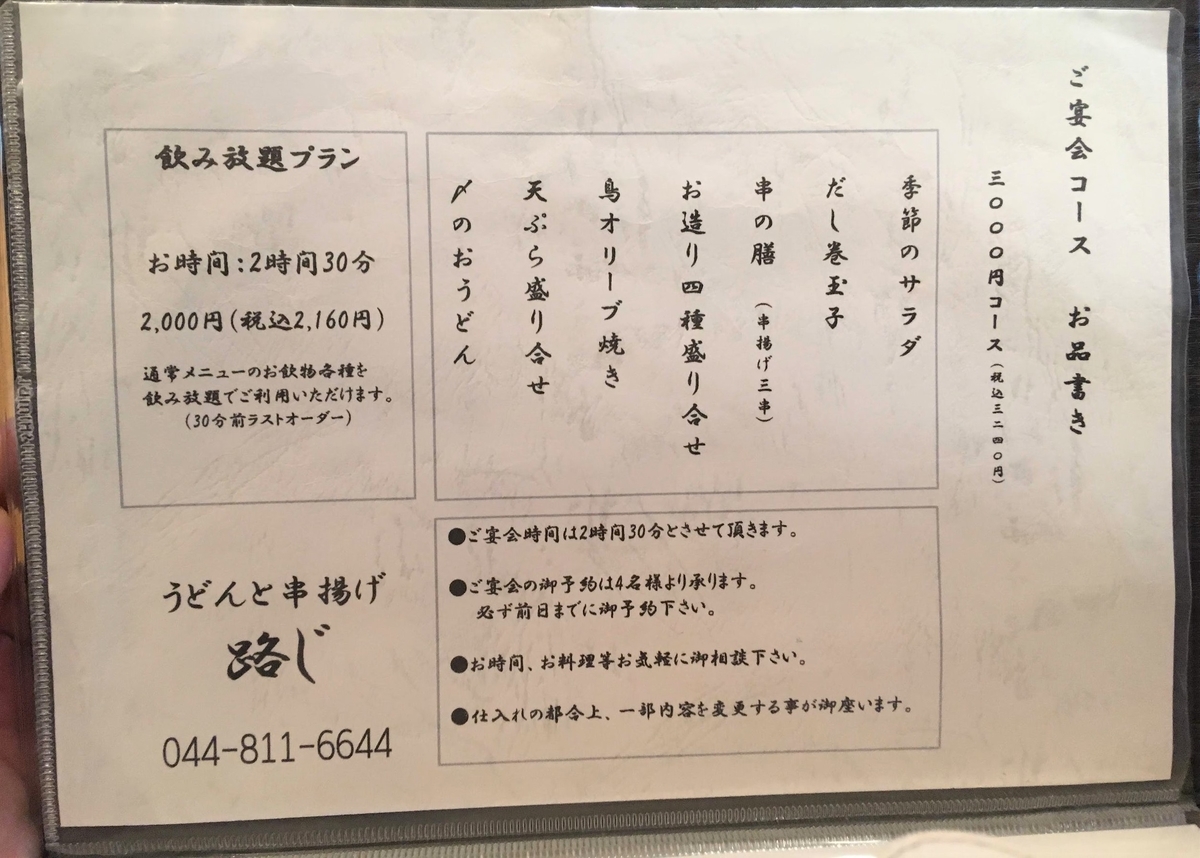 ご宴会コース お品書き
三〇〇〇円コース(税込三二四〇円)
季節のサラダ
だし巻玉子
串の膳 (串揚げ三串)
お造り四種盛り合せ
鳥オリーブ焼き
天ぷら盛り合せ
〆のおうどん
飲み放題プラン
お時間:2時間30分
2,000円(税込2,160円)
通常メニューのお飲物各種を
飲み放題でご利用いただけます。
(30分前ラストオーダー)
●ご宴会時間は2時間30分とさせて頂きます。
●ご宴会の御予約は4名様より承ります。
必ず前日までに御予約下さい。
●お時間、お料理等お気軽に御相談下さい。
●仕入れの都合上、一部内容を変更する事が御座います。
うどんと串揚げ
路じ
044-811-6644